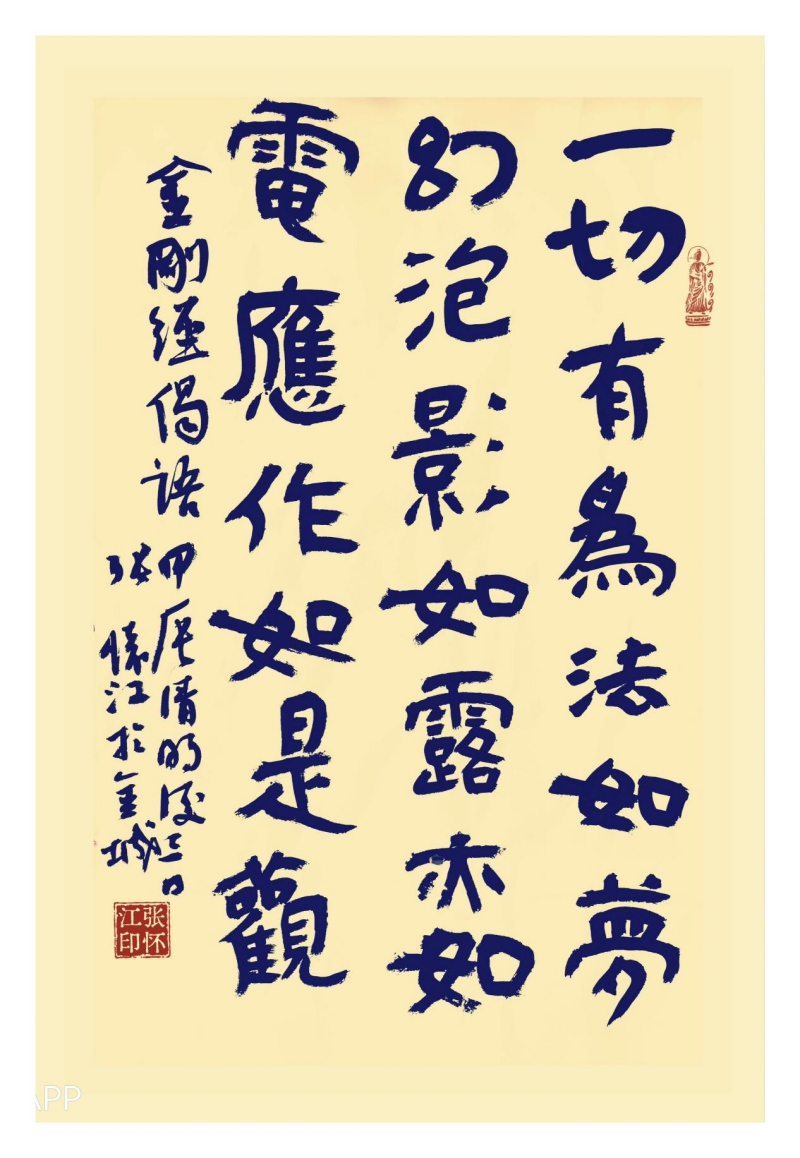 一切有為法如夢
幻泡影如露亦如
電應作如是觀
金剛經偈語
甲辰清明後三日
张懷江於金城
张怀江印
APP